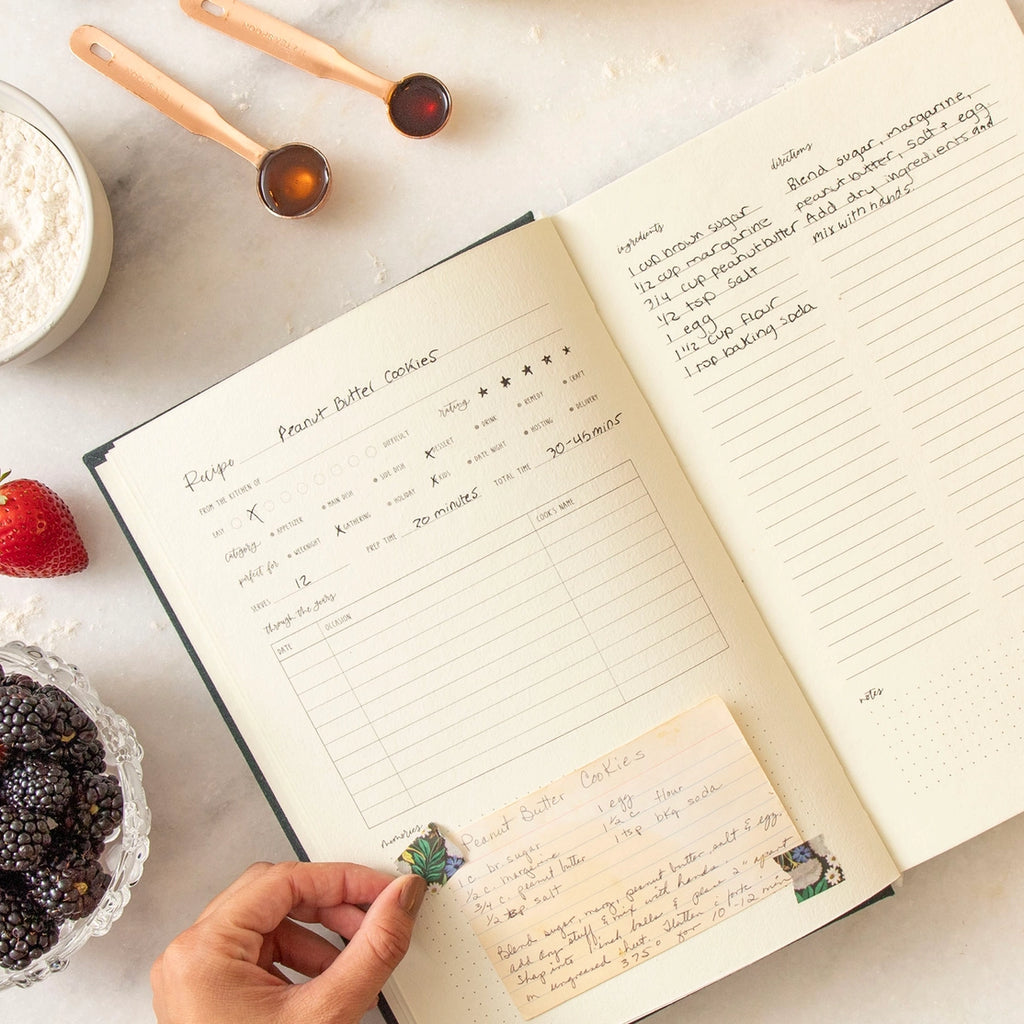 Peanut Butter Cookies
Recipe
FROM THE KITCHEN OF
rating ★ ★ ★ ★ ★
EASY X DIFFICULT
category • APPETIZER • MAIN DISH • SIDE DISH X DESSERT • DRINK • REMEDY • CRAFT
perfect for • WEEKNIGHT X GATHERING • HOLIDAY X KIDS • DATE NIGHT • HOSTING • DELIVERY
SERVES 12 PREP TIME 20 minutes TOTAL TIME 30-45 mins
through the years
DATE OCCASION COOK'S NAME
memories
Peanut Butter Cookies
1 c. br. sugar
1/2 c. margarine
3/4 c. peanut butter
1/2 tsp salt
1 egg
1 1/2 c flour
1 tsp bkg soda
Blend sugar, marg, peanut butter, salt & egg.
add dry stuff & mix with hands.
Shap into 1 inch balls & place 2" apart
on ungreased sheet. Flatten c fork.
375° for 10-12 min
ingredients
1 cup brown sugar
1/2 cup margarine
3/4 cup peanut butter
1/2 tsp salt
1 egg
1 1/2 cup flour
1 tsp baking soda
directions
Blend sugar, margarine,
peanut butter, salt + egg.
Add dry ingredients and
mix with hands.
notes